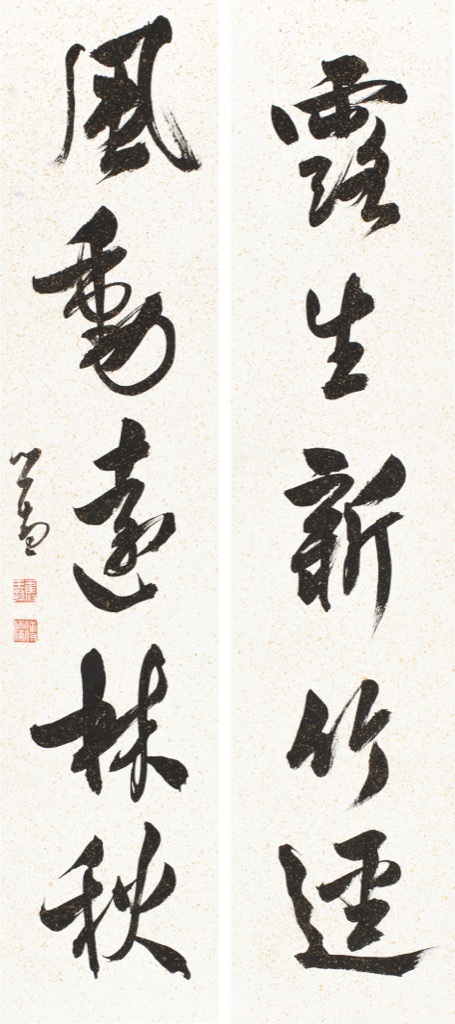 露生新竹逕
風動遠林秋
心畬